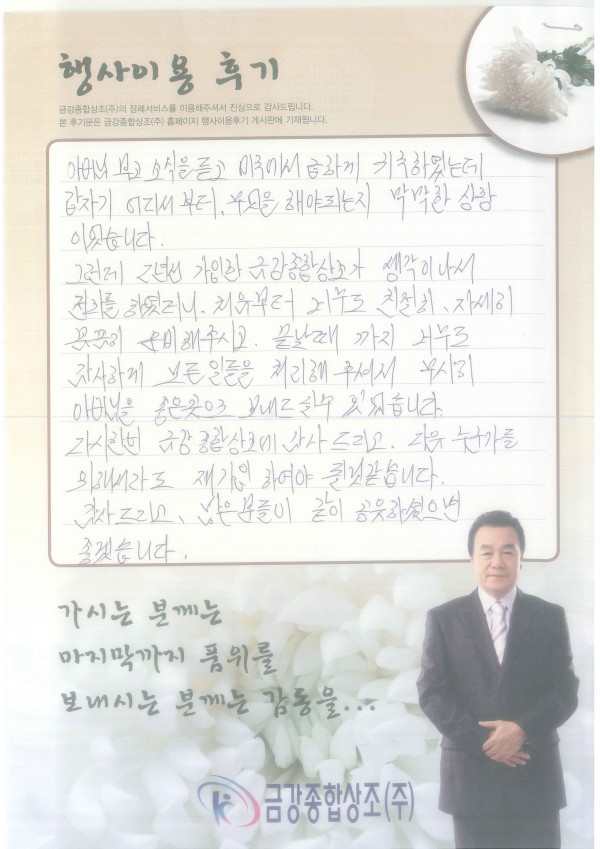 행사이용 후기
금강종합상조(주)의 장례서비스를 이용해주셔서 진심으로 감사드립니다.
본 후기문은 금강종합상조(주) 홈페이지 행사이용후기 게시판에 기재됩니다.
아버님 부고 소식을 듣고 미국에서 급하게 귀국하였는데
갑자기 어디서 부터, 무엇을 해야되는지 막막한 상황
이었습니다.
그런데 2년전 가입한 금강종합상조가 생각이나서
전화를 하였더니, 처음부터 너무도 친절히, 자세히
꼼꼼히 준비해주시고, 끝날때 까지 너무도
감사하게 모든일들을 처리해 주셔서 무사히
아버님을 좋은곳으로 보내드릴수 있었습니다.
다시한번 금강종합상조에 감사드리고, 다음 누군가를
위해서라도 재가입 하여야 될것같습니다.
감사드리고, 많은분들이 같이 공유하셨으면
좋겠습니다.
가시는 분께는
마지막까지 품위를
보내시는 분께는 감동을...
금강종합상조(주)